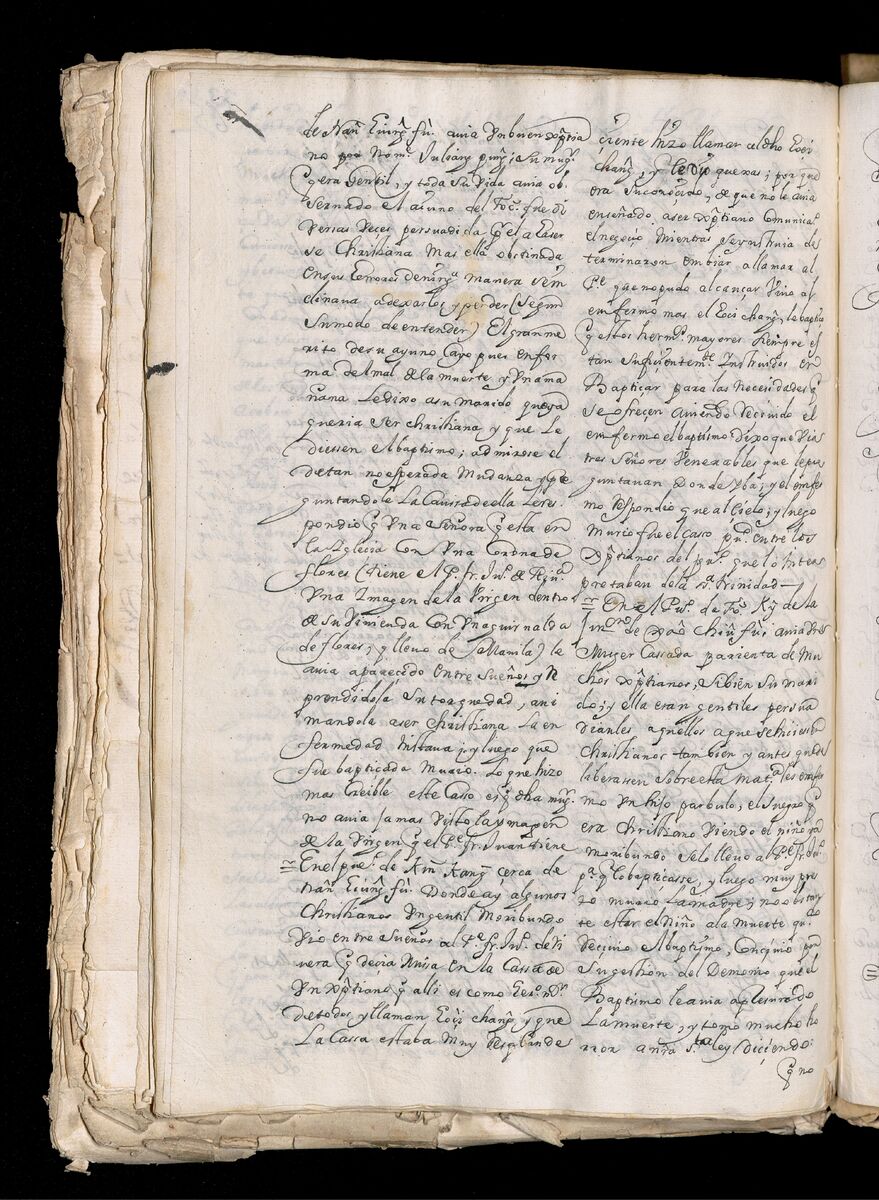 de Nan̂ Eiunĝ fû. auia Vn buen xp̃tia
no por nom.e Julian y su mug.r
q̃ era Gentil, y toda su Vida auia ob
seruado el aiuno del Foĉ. fue di
Versas Veçes persuadida q̃
se Christiana Mas ella obstinada
en sus errores de ning.a manera se in
clinaua a dexarlos, y perder (segun
su modo de entender) El gran me
rito de su ayuno Cayo pues enfer
ma del mal de la muerte y Vna ma
ñana le dixo a su marido que ya
queria ser christiana y que le
diessen el baptismo; admirose el
de tan no esperada Mudanza y pre
guntandole La Caussa de ella le res
pondio q̃ Vna señora q̃ esta en
la Iglesia Con Vna Corona de
flores (tiene el P. fr. Ju.o de
Vna Imagen de la Virgen dentro
de su Viuienda Con Vna guirnalda
de flores, y lleuo de Manila) le
auia aparecido entre Sueños y Re
prendidola su torquedad, ani
mandola a ser Christiana la en
fermedad instaua; y luego que
fue bapticada Murio. Lo que hizo
mas Creible este Casso es q̃ dha mug.r
no auia Jamas Visto la ymagen
de la Virgen q̃ el P.e fr. Juan tiene
En el pue.o de Kin̂ Kanĝ çerca de
Nan̂ Eiunĝ fû. Donde ay algunos
Christianos Vn gentil Moribundo
Vio entre Sueños al P.e fr. Ju.o de Ri
uera q̃ decia Missa en la Cassa de
Vn xp̃tiano q̃ alli es como
de todos, y llaman chanĝ y que
La Cassa estaba Muy Resplande
çiente hizo llamar al dho
chanĝ, y le dio quexas; por que
era su conoçido, de que no le auia
enseñado a ser xp̃tiano Comunica.o
el negoçio Mientras se ynstruia de
terminaron embiar a llamar al
P.e que no pudo alcançar Vino al
enfermo mas el chanĝ, le baptiço
q̃ estos herm.os mayores siempre es
tan sufiçientem.te Instruidos en
Baptiçar para las neçesidades q̃
se ofreçen auiendo Reciuido el
enfermo el baptismo Dixo que Via
tres Señores Venerables que le pre
guntauan Donde yba; y el enfer
mo respondio que al Cielo; y luego
Murio fue el Casso pu.co entre los
xp̃tianos del pu.o que lo inter
pretaban de la S.a trinidad
En el Pu.o de Fô. Kŷ de la
de Xaô chiû fû auia Vna
Muger Cassada parienta de Mu
chos xp̃tianos, si bien su mari
do; y ella eran gentiles persua
dianles aquellos a que se hiciessen
Christianos tambien y antes que de
liberassen sobre esta mat.a les enfer
mo Vn hijo parbulo; el suegro q̃
era christiano Viendo el niño ya
moribundo se lo lleuo al P.e fr. Ju.o
p.a q̃ lo bapticasse y luego muy pres
to murio La madre; no obstan
te estar el Niño a la Muerte qu.do
Reciuio el Baptismo, Conciuio por
sugestion del Demonio que el
Baptismo le auia aplesurado
La muerte, y tomo mucho ho
rror a nr̃a S.ta ley Diçiendo
q̃ no